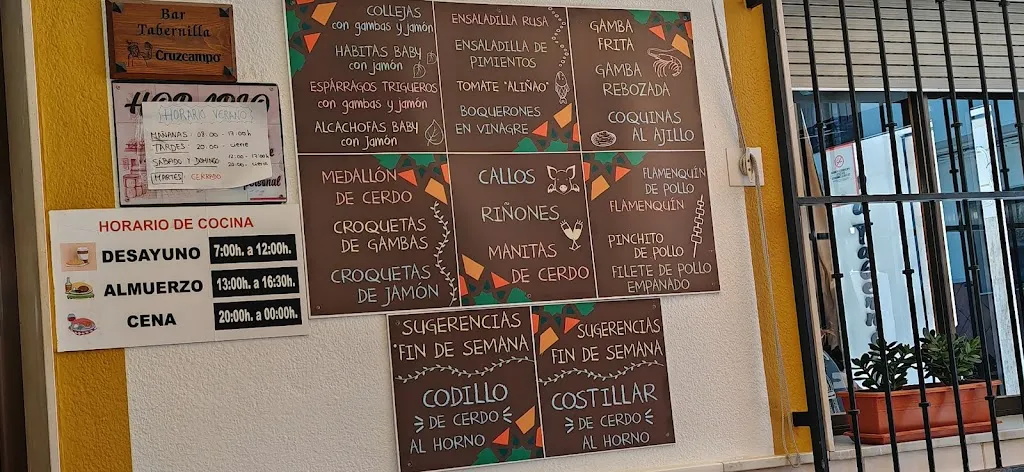 Bar
Tabernilla
Cruzcampo
HORARIO
¡HORARIO VERANO!
MAÑANAS: 08:00 - 17:00h
TARDES: 20:00 - cierre
SABADO Y DOMINGO 12:00 - 17:00h
20:00 - cierre
MARTES: CERRADO
personal
HORARIO DE COCINA
DESAYUNO 7:00h. a 12:00h.
ALMUERZO 13:00h. a 16:30h.
CENA 20:00h. a 00:00h.
COLLEJAS
con gambas y jamón
HABITAS BABY
con jamón
ESPÁRRAGOS TRIGUEROS
con gambas y jamón
ALCACHOFAS BABY
con jamón
ENSALADILLA RUSA
ENSALADILLA DE
PIMIENTOS
TOMATE "ALIÑAO"
BOQUERONES
EN VINAGRE
GAMBA
FRITA
GAMBA
REBOZADA
COQUINAS
AL AJILLO
MEDALLÓN
DE CERDO
CROQUETAS
DE GAMBAS
CROQUETAS
DE JAMÓN
CALLOS
RIÑONES
MANITAS
DE CERDO
FLAMENQUÍN
DE POLLO
FLAMENQUÍN
PINCHITO
DE POLLO
FILETE DE POLLO
EMPANADO
SUGERENCIAS
FIN DE SEMANA
CODILLO
DE CERDO
AL HORNO
SUGERENCIAS
FIN DE SEMANA
COSTILLAR
DE CERDO
AL HORNO